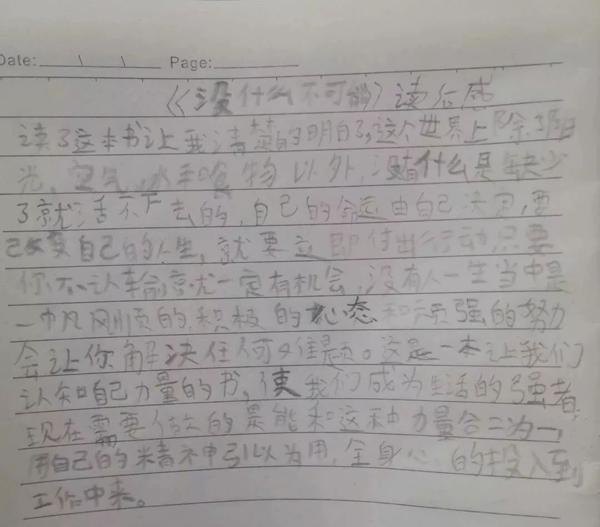 Date: \ \ Page:
《没什么不可能》读后感
读了这本书让我清楚的明白了,这个世界上除了阳
光,空气,水和食物以外,没有什么是缺少
了就活不下去的,自己的命运由自己决定,要
改变自己的人生,就要立即付出行动,只要
你不认输就一定有机会,没有人一生当中是
一帆风顺的,积极的心态和顽强的努力
会让你解决任何难题。这是一本让我们
认知自己力量的书,使我们成为生活的强者,
现在需要做的是能和这种力量合二为一,
用自己的精神引以为用,全身心的投入到
工作中来。